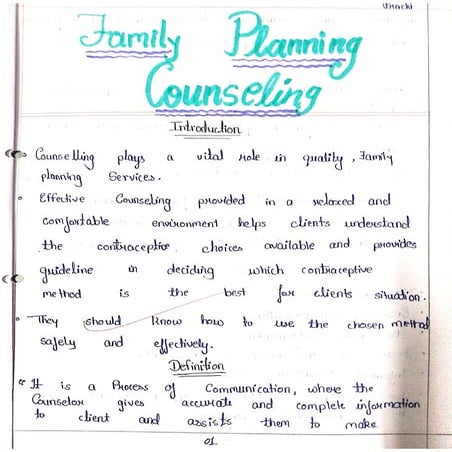 Family Planning
Counseling
Introduction
Counselling plays a vital role in quality, Family
planning Services.
Effective Counseling provided in a relaxed and
comfortable environment helps clients understand
the contraceptive choices available and provides
guideline in deciding which contraceptive
method is the best for clients situation.
They should know how to use the chosen method
safely and effectively.
Definition
It is a Process of Communication, where the
Counselor gives accurate and complete information
to client and assists them to make
01.